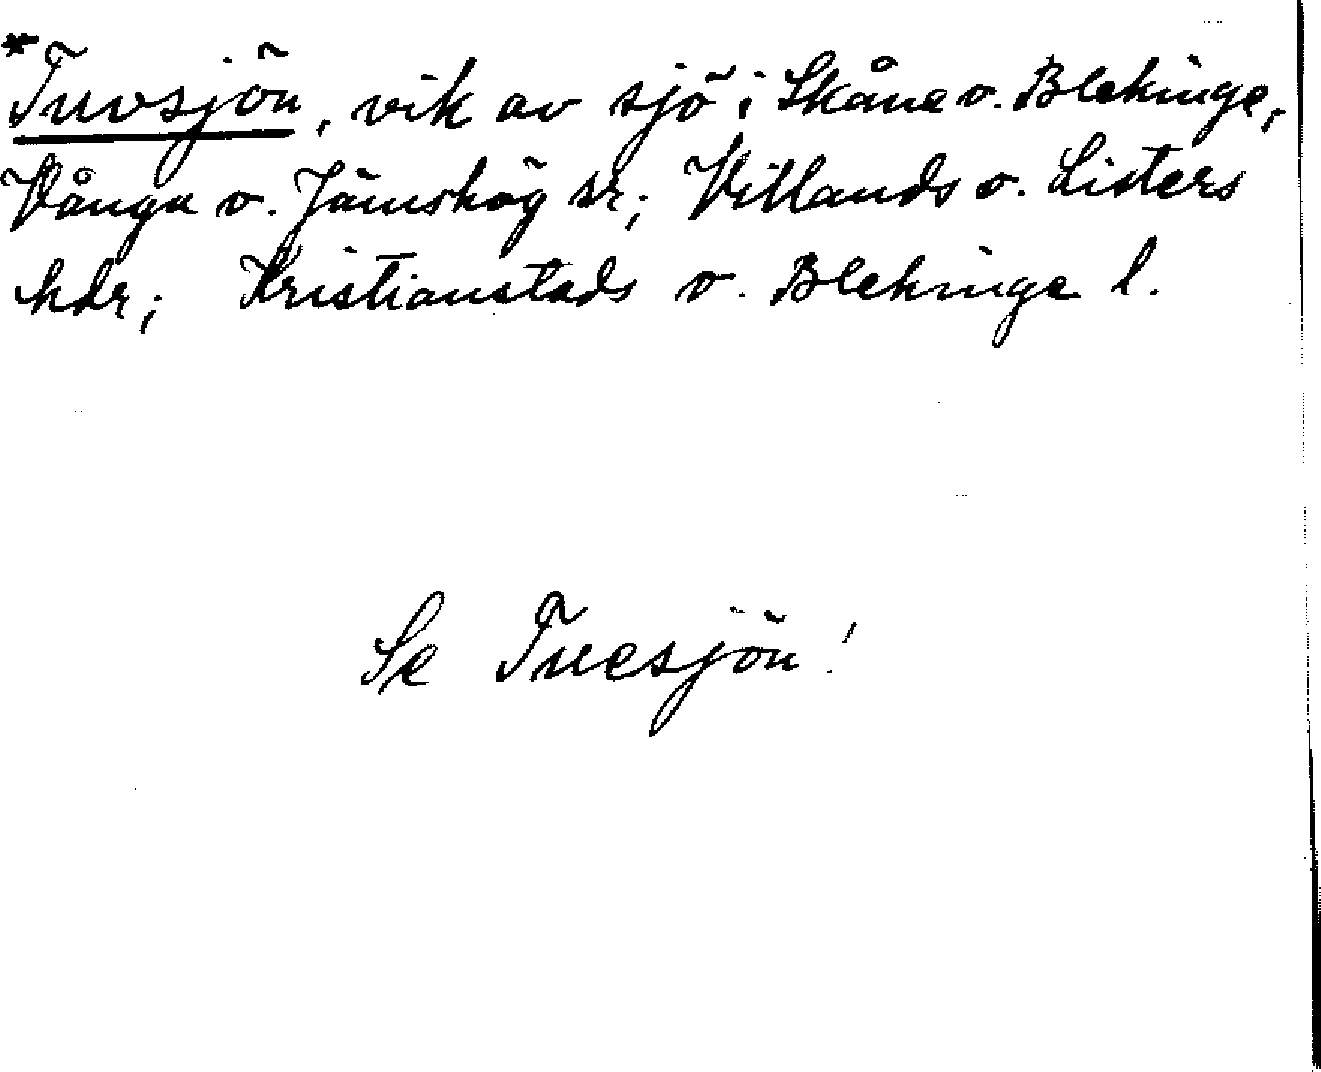 *Tuvsjön, vik av sjö i Skåne o. Blekinge,
Vånga o. Jämshög sr; Villands o. Listers
hdr; Kristianstads o. Blekinge l.
Se Tuesjön!